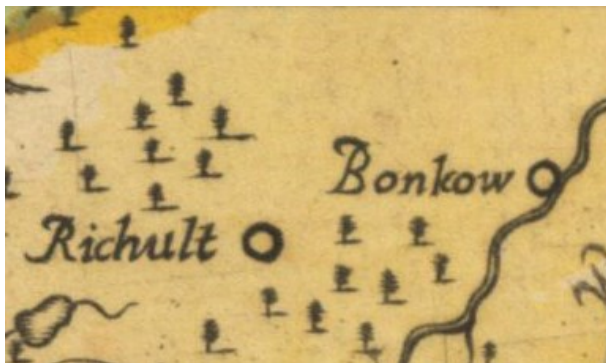 Bonkow
Richult